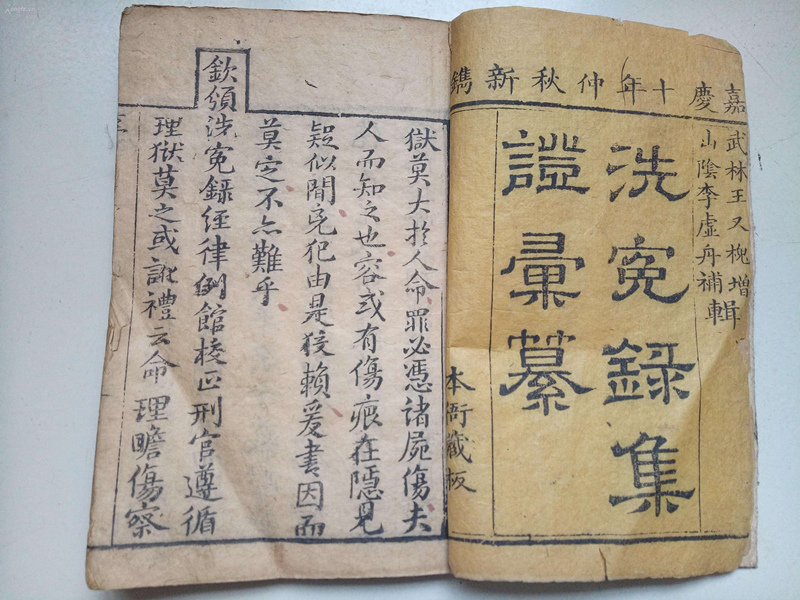 嘉慶十年仲秋新鐫
武林王又槐增輯
山陰李虛舟補輯
洗寃錄集
證彙纂
本衙藏板
獄莫大扵人命罪必憑諸屍傷夫
人而知之也容或有傷痕在隱見
疑似間兇犯由是狡賴爰書因而
莫定不亦難乎
欽頒洗寃錄經律例館校正刑官遵循
理獄莫之或訛禮云命理瞻傷察